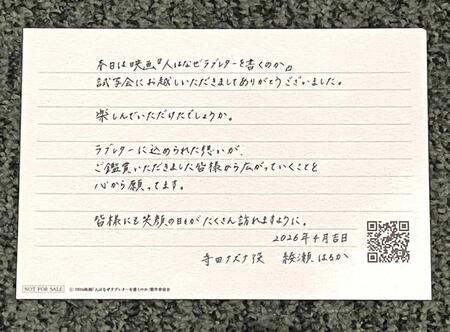 本日は映画『人はなぜラブレターを書くのか』
試写会にお越しいただきましてありがとうございました。
楽しんでいただけたでしょうか。
ラブレターに込められた想いが、
ご鑑賞いただきました皆様から広がっていくことを
心から願ってます。
皆様にも笑顔の日々がたくさん訪れますように。
2026年4月吉日
寺田ナズナ役 綾瀬はるか
NOT FOR SALE
©2026映画「人はなぜラブレターを書くのか」製作委員会